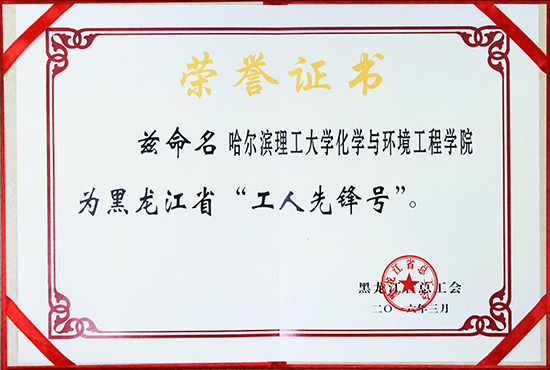 荣誉证书
兹命名哈尔滨理工大学化学与环境工程学院
为黑龙江省“工人先锋号”。
黑龙江省总工会
二〇一六年三月